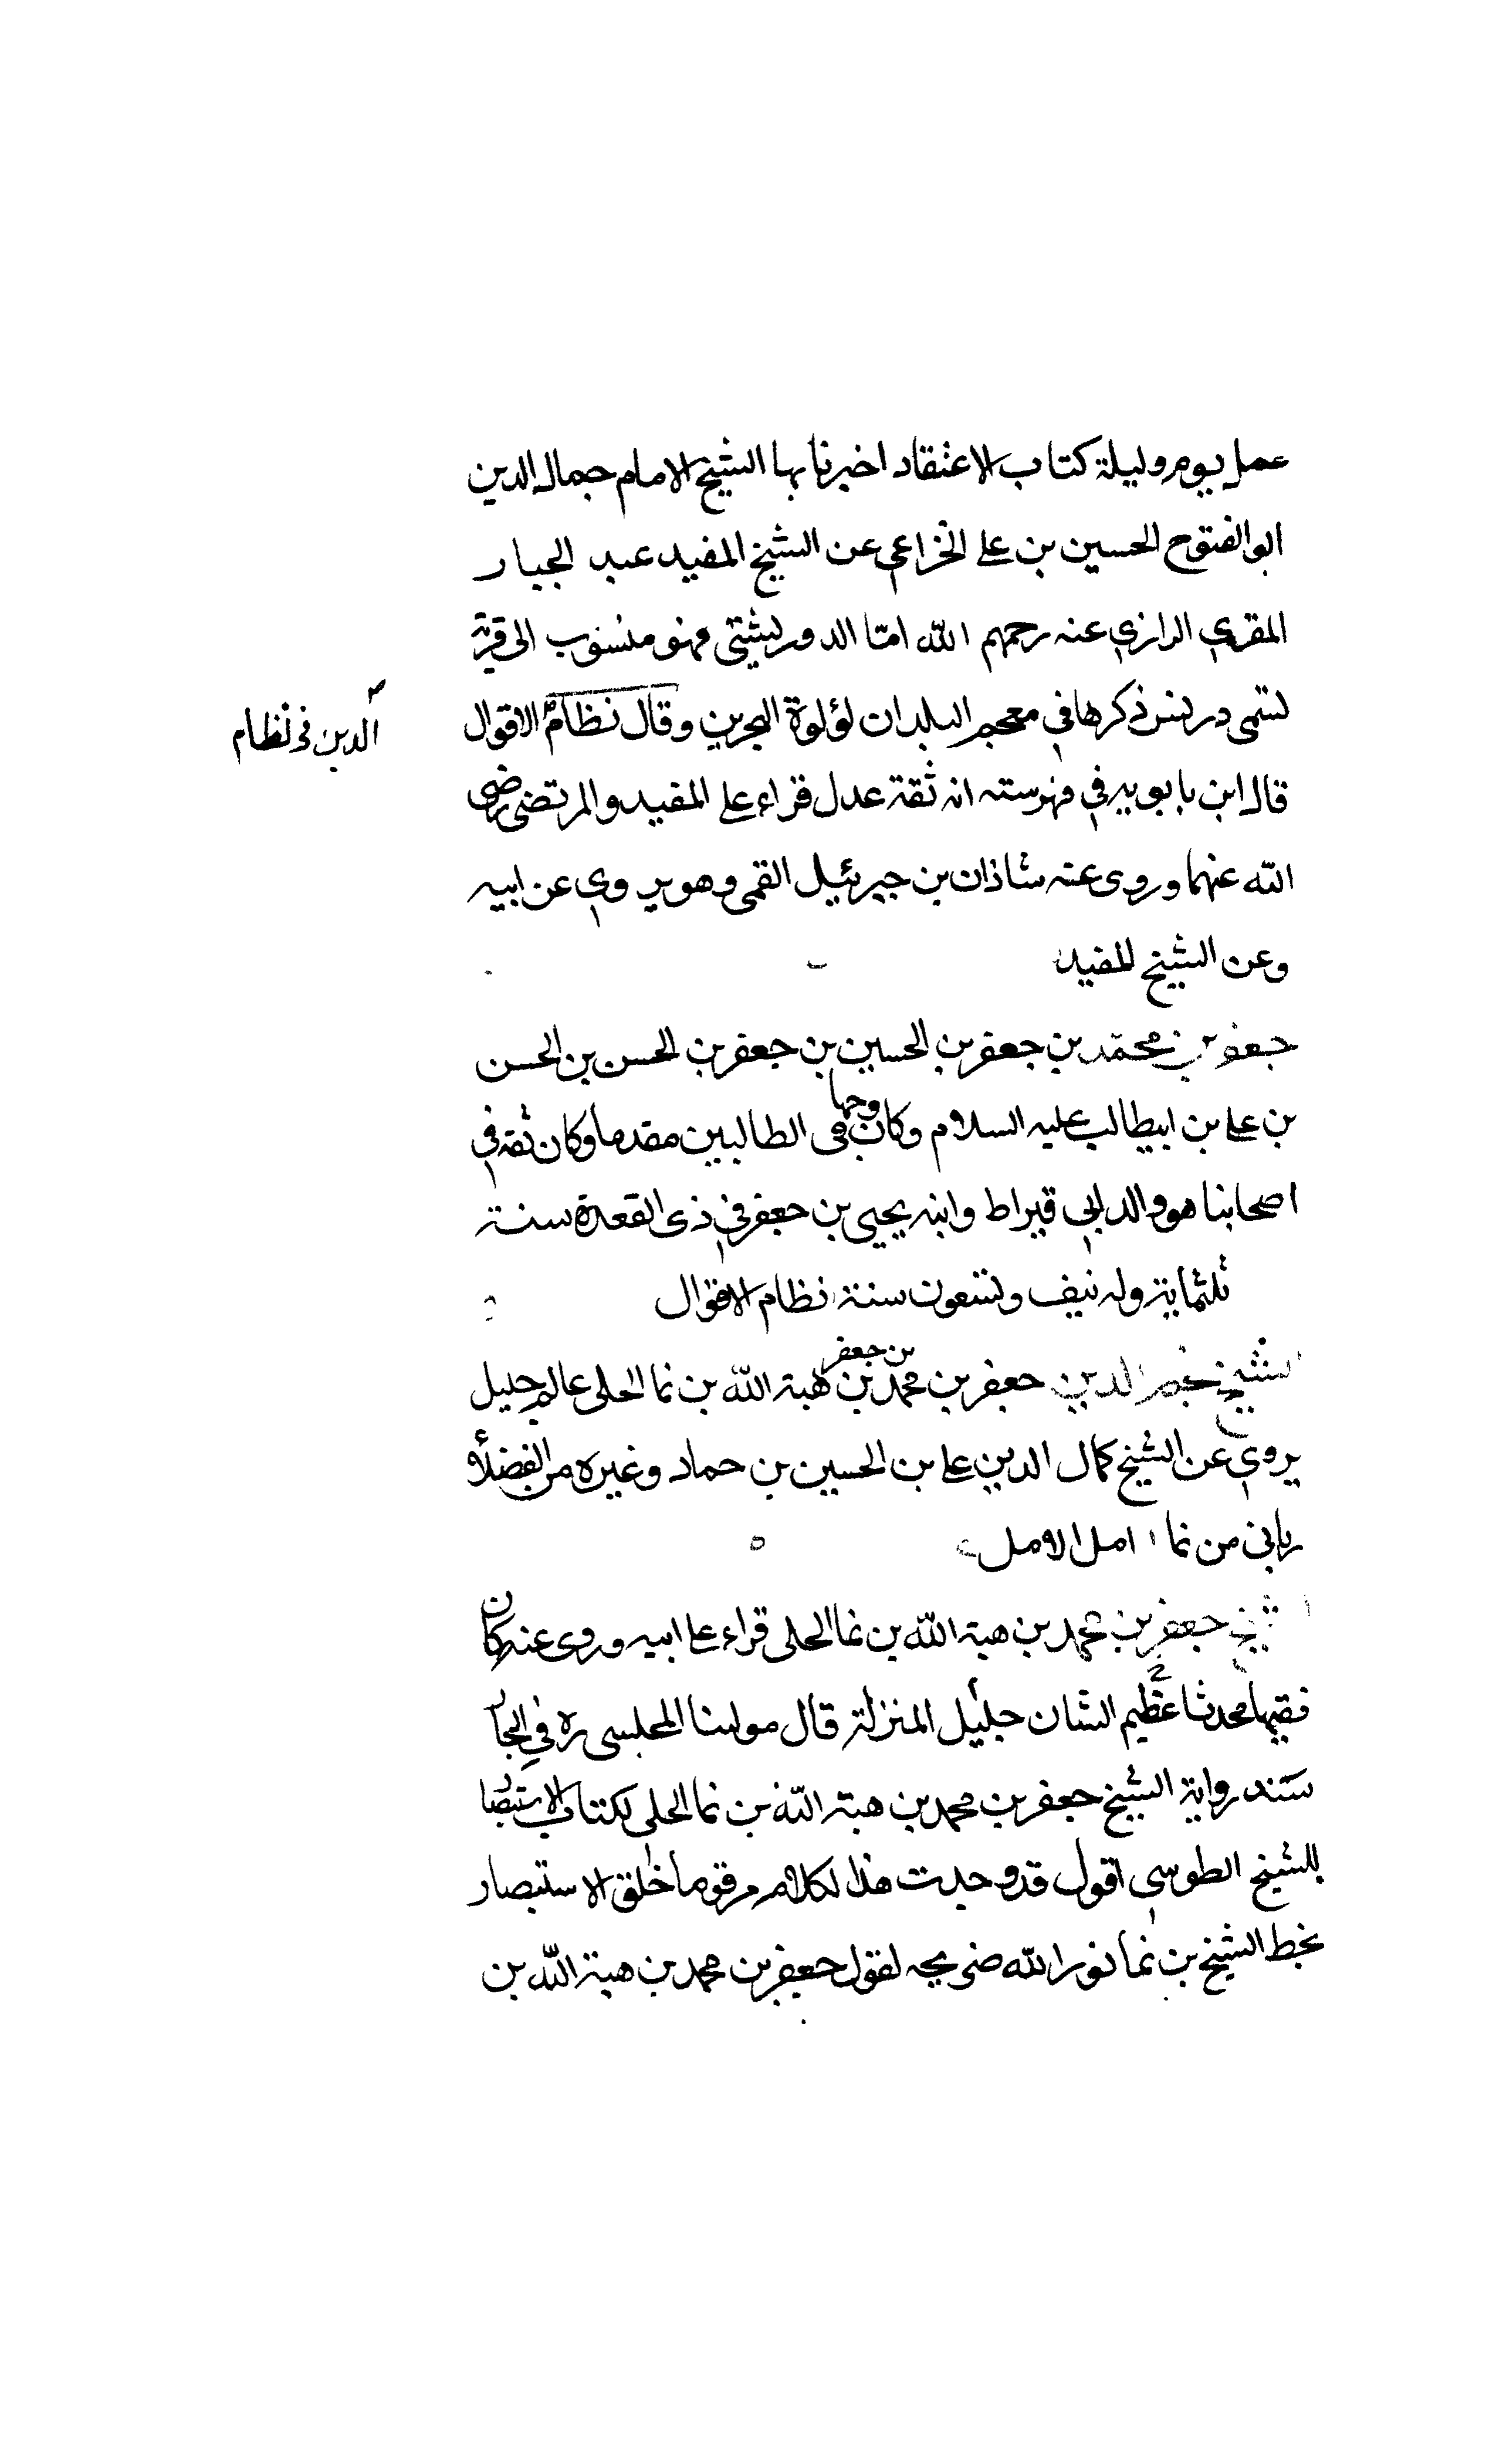 عمل يوم وليلة كتاب الاعتقاد اخبرنا بها الشيخ الامام جمال الدين
ابو الفتوح الحسين بن على الخزاعي عن الشيخ المفيد عبد الجبار
المقري الرازي عنه رحمهم الله امّا الدوريشتى فهو منسوب الى قرية
تسمى ذكرها في معجم البلدان لؤلوة البحرين وقال نظام الاقوال
الدين فى نظام
قال ابن بابويه في فهرسته انه ثقة عدل قراء على المفيد والمرتضى رضى
الله عنهما وروى عنه شاذان بن جبرئيل القمى وهو يروي عن ابيه
وعن الشيخ المفيد
جعفر بن محمّد بن جعفر بن الحسين بن جعفر بن الحسن بن الحسن
بن على بن ابيطالب عليه السلام وكان وجها فى الطالبين مقدما وكان ثقه في
اصحابنا هو والد ابي قيراط وابنه يحيى بن جعفر في ذى القعدة سنة
ثلثمائة وله نيف وتسعون سنة نظام الاقوال
الشيخ نجم الدين جعفر بن محمد بن جعفر بن هبة الله بن نما الحلى عالم جليل
يروي عن الشيخ كمال الدين على بن الحسين بن حماد وغيره من الفضلاء و
ياتى من نما امل الامل
الشيخ جعفر بن محمد بن هبة الله بن نما الحلى قراء على ابيه وروى عنه كان
فقيها محدثا عظيم الشان جليل المنزلة قال مولنا المجلسى ره في البحار
سند رواية الشيخ جعفر بن محمد بن هبة الله بن نما الحلى لكتاب الاستبصار
للشيخ الطوسي اقول قد وجدت هذا لكلام مرقوما خلق الاستبصار
بخط الشيخ بن نما نور الله ضريحه لقول جعفر بن محمد بن هبة الله بن